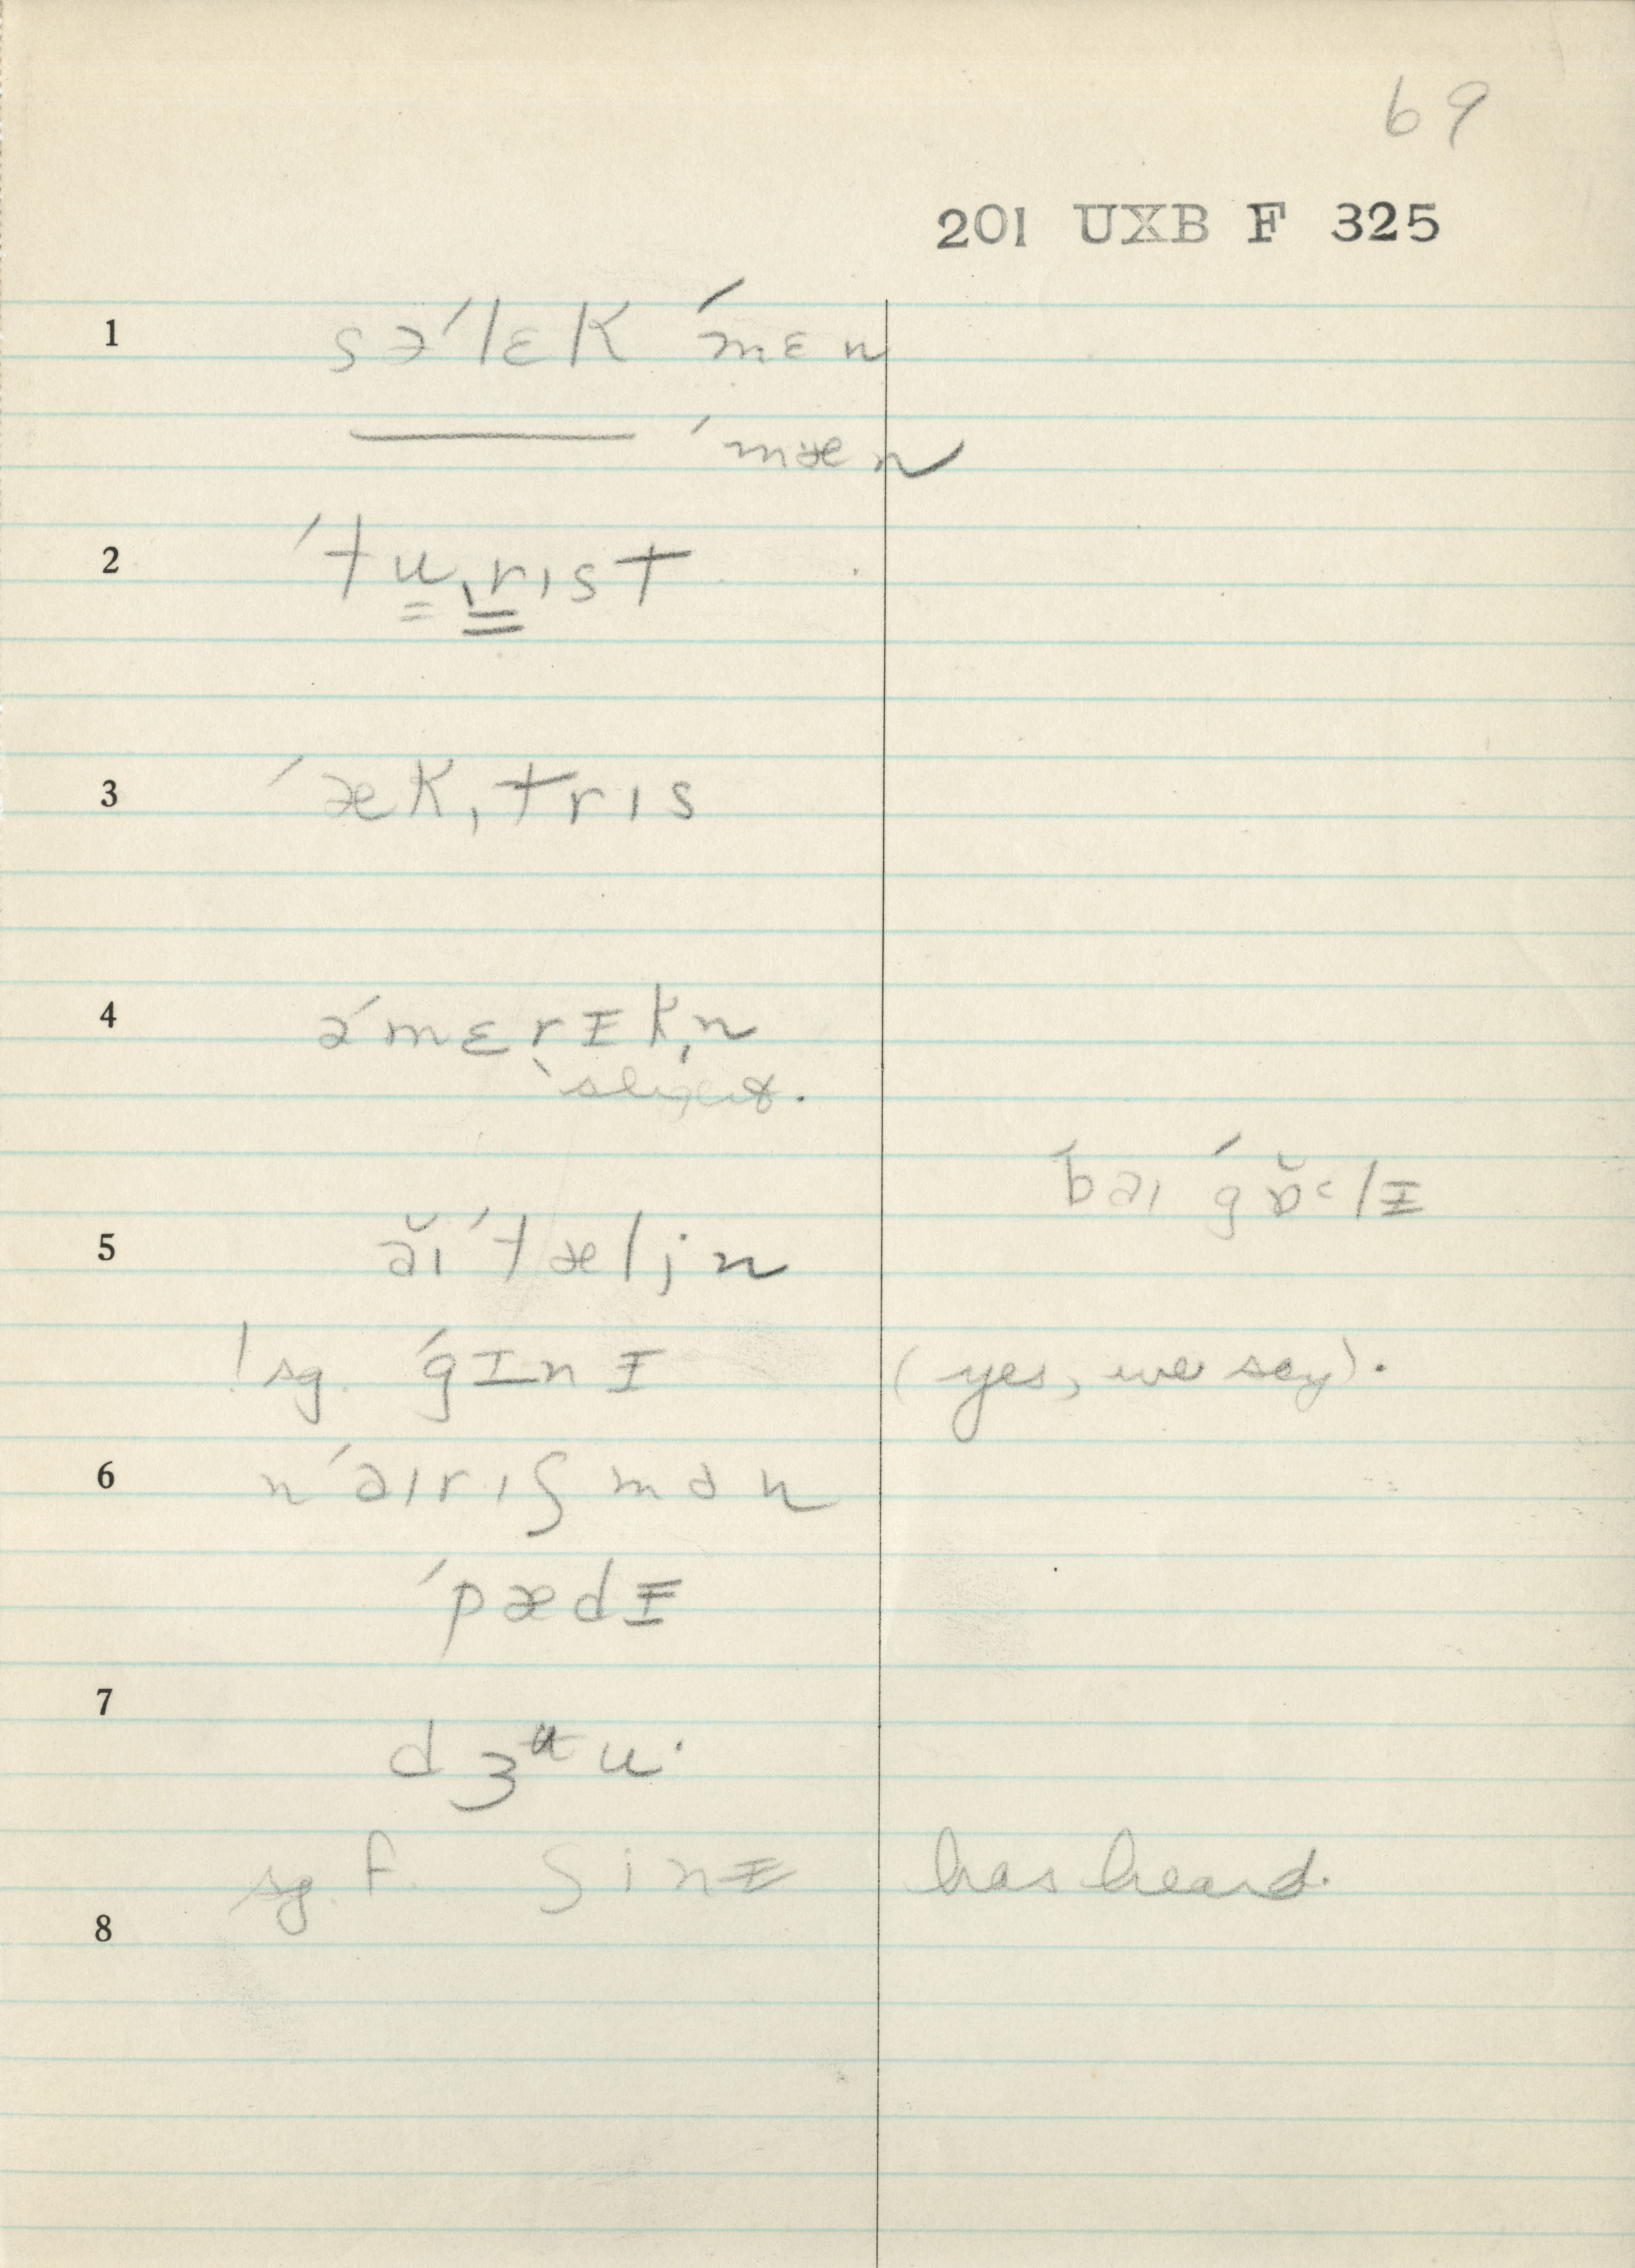 69
201 UXB F 325
1 sə´lɛk ´mɛn
——— ´mæn
2 ´tu̳ˌr̳ɪst
3 ´ækˌtrɪs
4 ə´mɛrɪk̩n
slight.
´baɪ ´gɒ̆ᶜlɪ
5 ăɪ´tæljn
! sg. ´gɪnɪ (yes, we say).
6 n´aɪrɪʃmən
´pædɪ
7 dʒᵾu·
sg. f. ʃinɪ has heard.
8